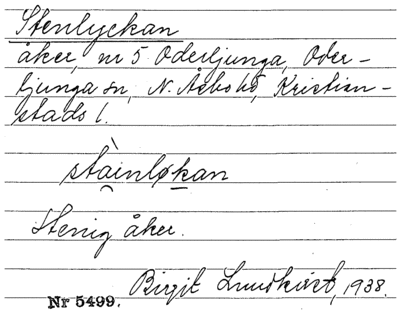 Stenlyckan
åker, nr 5 Oderljunga, Oder-
ljunga sn, N. Åsbo hd, Kristian-
stads l.
stàinløkan
Stenig åker.
Birgit Lundkvist, 1938.
Nr 5499.